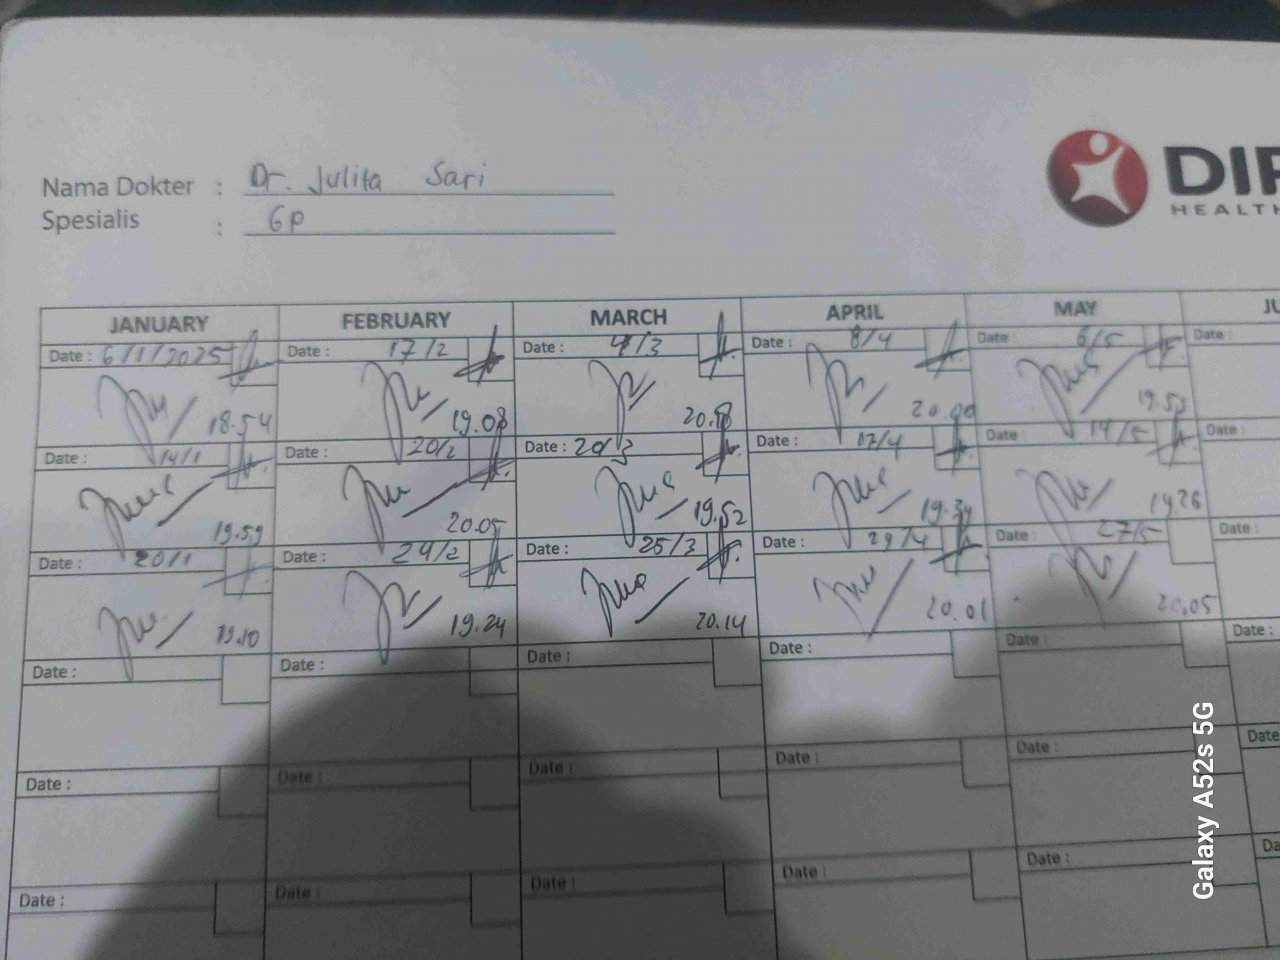 Nama Dokter : Dr. Julita Sari
Spesialis : GP
HEALTH
JANUARY FEBRUARY MARCH APRIL MAY
Date : 6/1/2025 Date : 17/2 Date : 4/3 Date : 8/4 Date : 6/5 Date :
18.54 19.08 20.18 20.00
Date : 14/1 Date : 20/2 Date : 20/3 Date : 17/4 Date : 14/5 Date :
19.59 20.05 19.52 19.34 19.26
Date : 20/1 Date : 24/2 Date : 25/3 Date : 29/4 Date : 27/5 Date :
19.10 19.24 20.14 20.01 20.05
Date : Date : Date : Date : Date : Date :
Date : Date : Date : Date : Date : Date
Date : Date : Date : Date : Date :
Galaxy A52s 5G